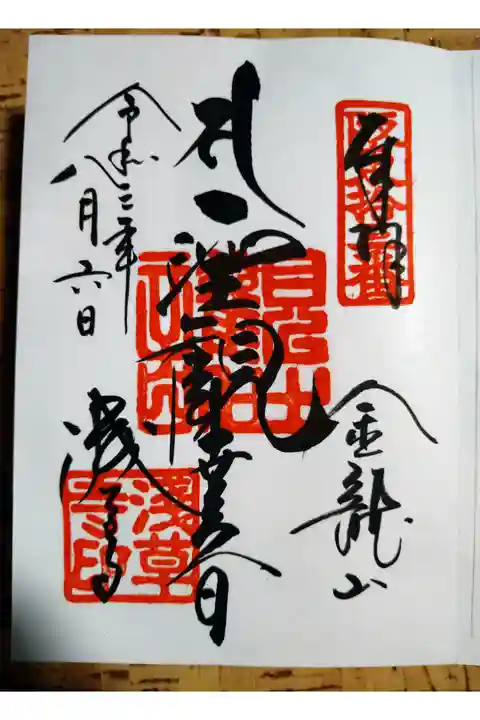 奉拝
金龍山
聖観世音
浅草寺
令和三年
八月六日
淺草寺印